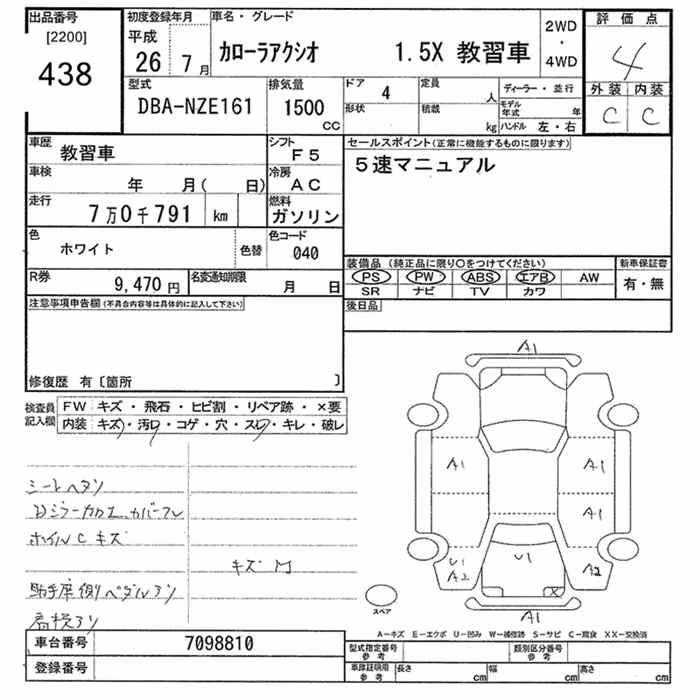 出品番号 初度登録年月 車名・グレード 2WD・4WD 評価点
[2200] 438 平成 26 7月 カローラアクシオ 1.5X 教習車 4
型式 排気量 ドア 4 定員 人 ディーラー・並行 外装 内装
DBA-NZE161 1500 cc 形状 積載 kg モデル年式 年 ハンドル 左・右 C C
車歴 教習車 シフト F5 セールスポイント(正常に機能するものに限ります)
車検 年 月( 日) 冷房 AC 5速マニュアル
走行 7万0千791 km 燃料 ガソリン
色 ホワイト 色替 色コード 040
装備品 (純正品に限り○をつけてください) 新車保証書
PS PW ABS エアB AW 有・無
SR ナビ TV カワ
R券 9,470円 名変通知期限 月 日
後日品
注意事項申告欄(不具合内容等は具体的に記入して下さい)
修復歴 有〔箇所 〕
検査員記入欄 FW キズ・飛石・ヒビ割・リペア跡・×要
内装 キズ・汚レ・コゲ・穴・スレ・キレ・破レ
シートヘタリ
Dミラーカウエ カバーフレ
ホイルC キズ
キズ M
助手席側ペダルアリ
A1
A1 A1
A1
U1 A2 U1 A2
X
A1
スペア
A-キズ E-エクボ U-凹み W-補修跡 S-サビ C-腐食 XX-交換済
車台番号 7098810 型式指定番号 参考 類別区分番号 参考
登録番号 車庫証明用 参考 長さ cm 幅 cm 高さ cm